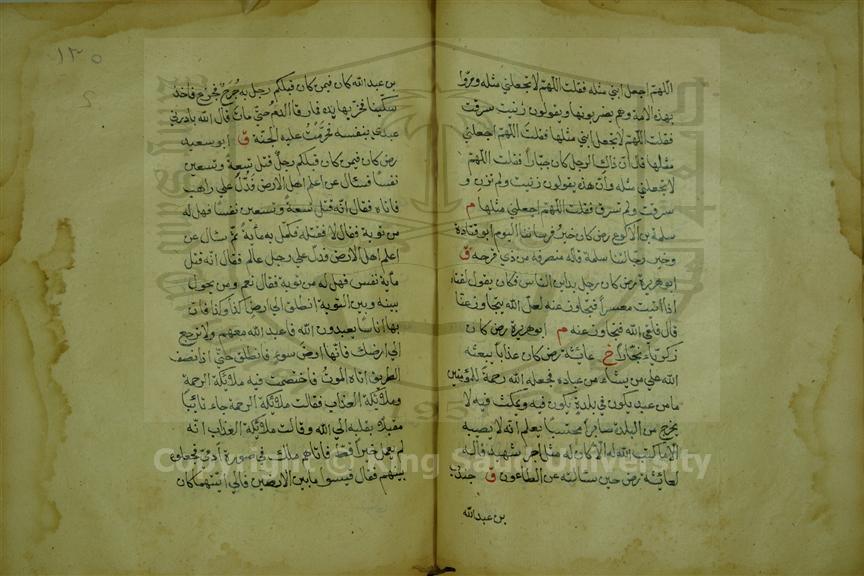 اللهم اجعل ابني مثله فقلت اللهم لا تجعلني مثله ومروا
بهذه الامة وهم يضربونها ويقولون زنيت سرقت
فقلت اللهم لا تجعل ابني مثلها فقلت اللهم اجعلني
مثلها قال ان ذلك الرجل كان جبارا فقلت اللهم
لا تجعلني مثله وان هذه يقولون زنيت ولم تزن و
سرقت ولم تسرق فقلت اللهم اجعلني مثلها م
سلمة بن الاكوع رض كان خير فرساننا اليوم ابو قتادة
وخير رجالتنا سلمة قاله منصرفه من ذي قرد ق
ابو هريرة رض كان رجل يداين الناس فكان يقول لفتاه
اذا اتيت معسرا فتجاوز عنه لعل الله يتجاوز عنا
قال فلقي الله فتجاوز عنه م ابو هريرة رض كان
زكرياء نجارا خ عائشة رض كان عذابا يبعثه
الله على من يشاء من عباده فجعله الله رحمة للمؤمنين
ما من عبد يكون في بلدة يكون فيه ويمكث فيه لا
يخرج من البلدة صابرا محتسبا يعلم انه لا يصيبه
الا ما كتب الله له الا كان له مثل اجر شهيد قاله
لعائشة رض حين سألته عن الطاعون ق جندب
بن عبدالله
١٣٥
بن عبد الله كان فيمن كان قبلكم رجل به جرح فجزع فاخذ
سكينا فحز بها يده فما رقأ الدم حتى مات قال الله بادرني
عبدي بنفسه فحرمت عليه الجنة ق ابو سعيد
رض كان فيمن كان قبلكم رجل قتل تسعة وتسعين
نفسا فسأل عن اعلم اهل الارض فدل على راهب
فاتاه فقال انه قتل تسعة وتسعين نفسا فهل له
من توبة فقال لا فقتله فكمل به مأية ثم سأل عن
اعلم اهل الارض فدل على رجل عالم فقال انه قتل
مأية نفس فهل له من توبة فقال نعم ومن يحول
بينه وبين التوبة انطلق الى ارض كذا وكذا فان
بها اناسا يعبدون الله فاعبد الله معهم ولا ترجع
الى ارضك فانها ارض سوء فانطلق حتى اذا نصف
الطريق اتاه الموت فاختصمت فيه ملائكة الرحمة
وملائكة العذاب فقالت ملائكة الرحمة جاء تائبا
مقبلا بقلبه الى الله وقالت ملائكة العذاب انه
لم يعمل خيرا قط فاتاهم ملك في صورة آدمي فجعلوه
بينهم فقال قيسوا ما بين الارضين فالى ايتهما كان
1957
Copyright © King Saud University